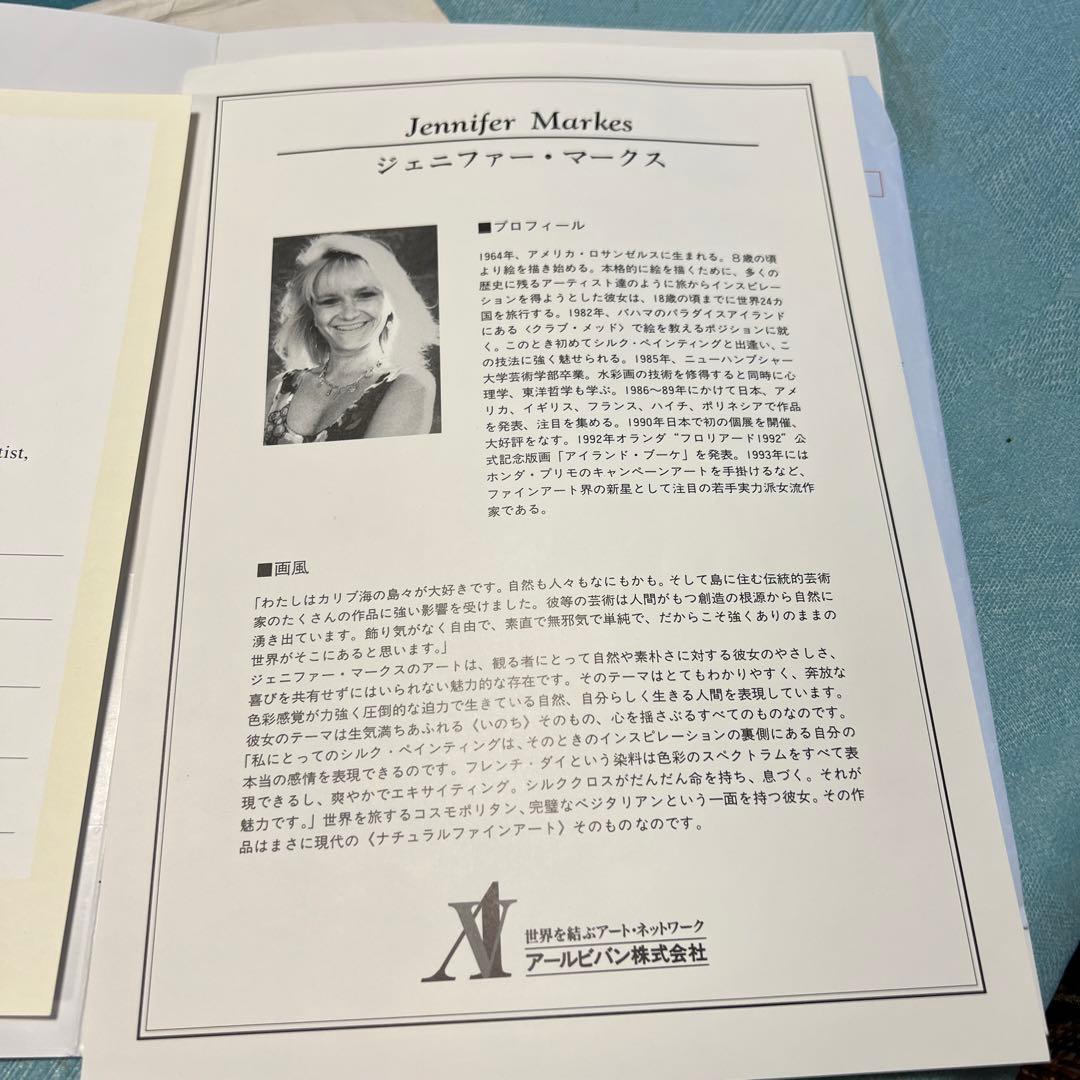 Jennifer Markes
ジェニファー・マークス
■プロフィール
1964年、アメリカ・ロサンゼルスに生まれる。8歳の頃
より絵を描き始める。本格的に絵を描くために、多くの
歴史に残るアーティスト達のように旅からインスピレー
ションを得ようとした彼女は、18歳の頃までに世界24カ
国を旅行する。1982年、バハマのパラダイスアイランド
にある〈クラブ・メッド〉で絵を教えるポジションに就
く。このとき初めてシルク・ペインティングと出逢い、こ
の技法に強く魅せられる。1985年、ニューハンプシャー
大学芸術学部卒業。水彩画の技術を修得すると同時に心
理学、東洋哲学も学ぶ。1986〜89年にかけて日本、アメ
リカ、イギリス、フランス、ハイチ、ポリネシアで作品
を発表、注目を集める。1990年日本で初の個展を開催、
大好評をなす。1992年オランダ“フロリアード1992”公
式記念版画「アイランド・ブーケ」を発表。1993年には
ホンダ・プリモのキャンペーンアートを手掛けるなど、
ファインアート界の新星として注目の若手実力派女流作
家である。
tist,
■画風
「わたしはカリブ海の島々が大好きです。自然も人々もなにもかも。そして島に住む伝統的芸術
家のたくさんの作品に強い影響を受けました。彼等の芸術は人間がもつ創造の根源から自然に
湧き出ています。飾り気がなく自由で、素直で無邪気で単純で、だからこそ強くありのままの
世界がそこにあると思います。」
ジェニファー・マークスのアートは、観る者にとって自然や素朴さに対する彼女のやさしさ、
喜びを共有せずにはいられない魅力的な存在です。そのテーマはとてもわかりやすく、奔放な
色彩感覚が力強く圧倒的な迫力で生きている自然、自分らしく生きる人間を表現しています。
彼女のテーマは生気満ちあふれる〈いのち〉そのもの、心を揺さぶるすべてのものなのです。
「私にとってのシルク・ペインティングは、そのときのインスピレーションの裏側にある自分の
本当の感情を表現できるのです。フレンチ・ダイという染料は色彩のスペクトラムをすべて表
現できるし、爽やかでエキサイティング。シルククロスがだんだん命を持ち、息づく。それが
魅力です。」世界を旅するコスモポリタン、完璧なベジタリアンという一面を持つ彼女。その作
品はまさに現代の〈ナチュラルファインアート〉そのものなのです。
世界を結ぶアート・ネットワーク
アールビバン株式会社